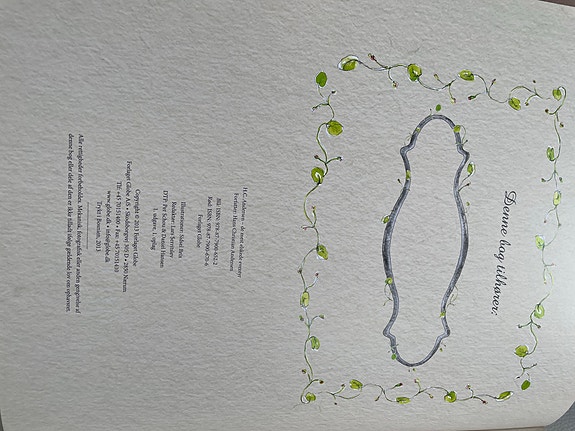 Denne bog tilhører:
H.C. Andersen – de mest elskede eventyr
Forfatter: Hans Christian Andersen
Blå: ISBN: 978-87-7900-
Rød: ISBN: 978-87-7900-
Forlaget Globe
Illustrationer: Mikel Brix
Redaktør: Lars
DTP: Per Schorn & Daniel Hansen
1. udgave, 1. oplag
Copyright © 2013 Forlaget Globe
Forlaget Globe A/S • Skodsborgvej 305 D • 2850 Nærum
Tlf: +45 70151400 • Fax: +45 70151410
www.globe.dk • info@globe.dk
Trykt i Bosnien, 2013
Alle rettigheder forbeholdes. Mekanisk, fotografisk eller anden gengivelse af
denne bog eller dele af den er ikke tilladt ifølge gældende lov om ophavsret.